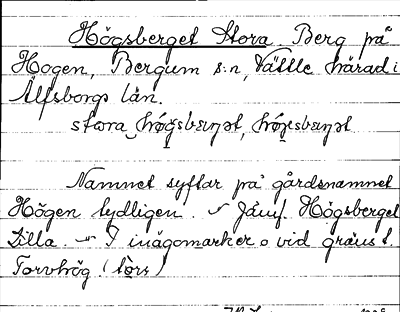 Högsberget Stora Berg på
Hogen, Bergum s:n, Vättle härad i
Älfsborgs län.
stora
Namnet syftar på gårdsnamnet
Högen tydligen. – Jämf. Högsberget
Lilla. – I inägomarker o vid gräns t.
Torvhög (torv)